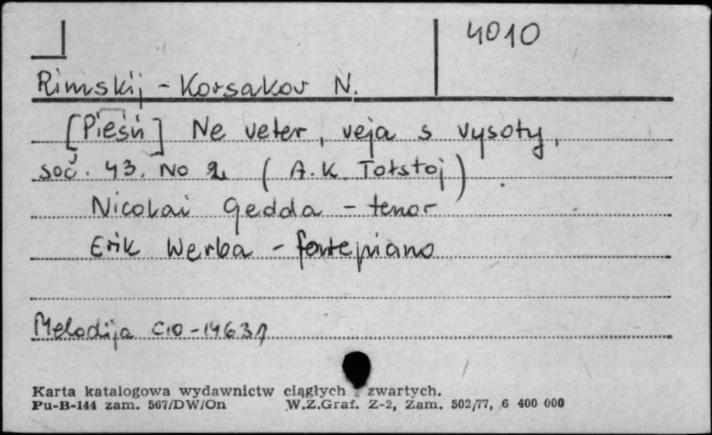 4010
Rimskij - Korsakov N.
[Pieśń] Ne veter, veja s vysoty,
soč. 43. No 2 (A.K. Tołstoj).
Nicolai Gedda - tenor
Erik Werba - fortepiano
Melodija C10-14631
Karta katalogowa wydawnictw ciągłych i zwartych.
Pu-B-144 zam. 567/DW/On W.Z.Graf. Z-2, Zam. 502/77, 6 400 000